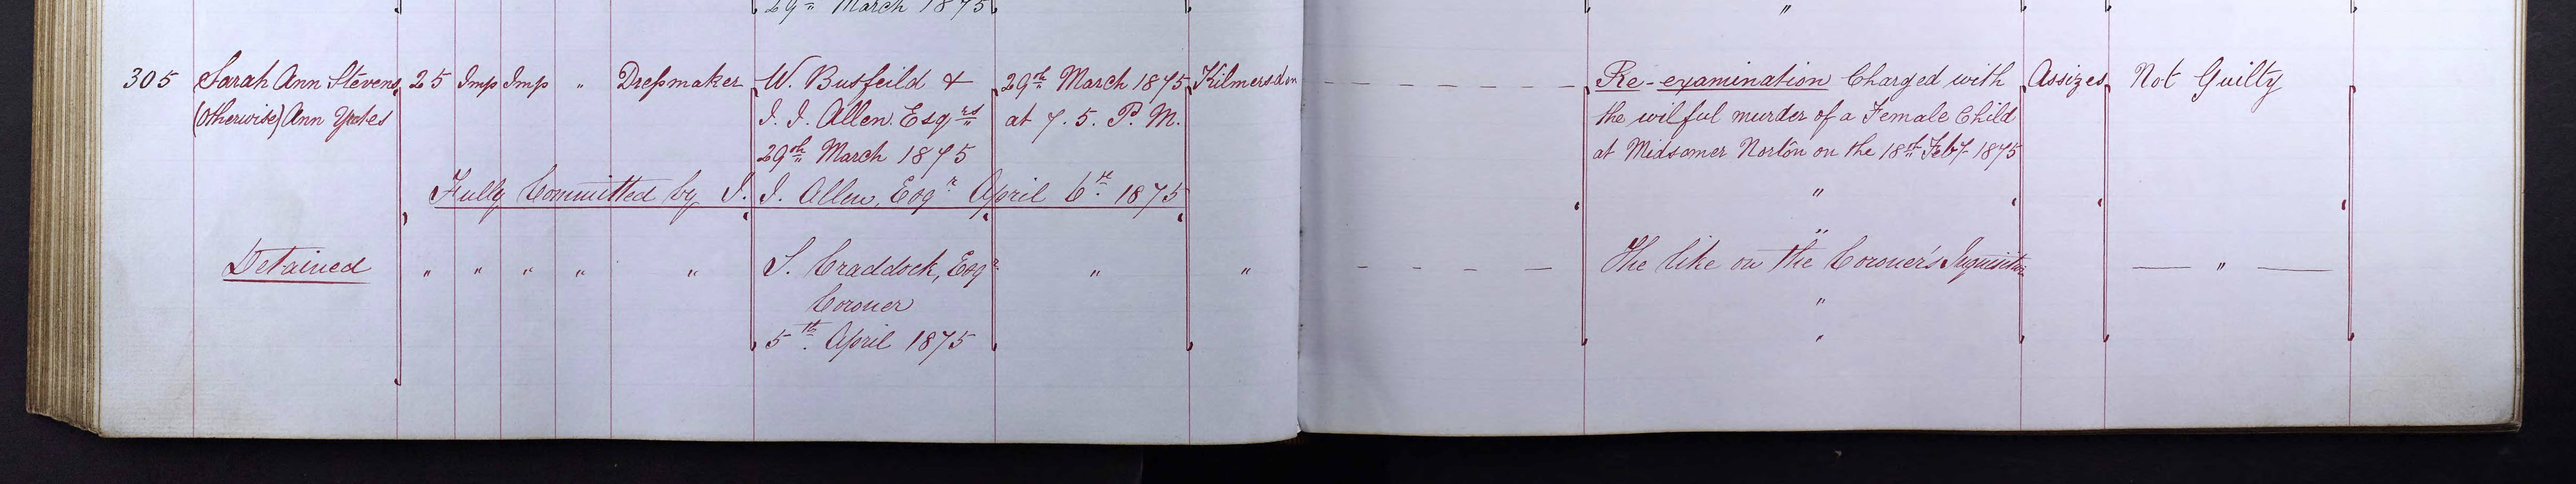 29th March 1875 "
305 Sarah Ann Stevens 25 Imp Imp " Dressmaker W. Busfeild & 29th March 1875 Kilmersdon Re-examination Charged with Assizes Not Guilty
(otherwise) Ann Yeates I. I. Allen. Esqrs at 7. 5. P. M. the wilful murder of a Female Child
29th March 1875 at Midsomer Norton on the 18th Feby 1875
Fully Committed by I. I. Allen, Esqr April 6th 1875 "
Detained " " " " " S. Craddock, Esqr " " The like on the Coroner's Inquisition "
Coroner "
5th April 1875 "